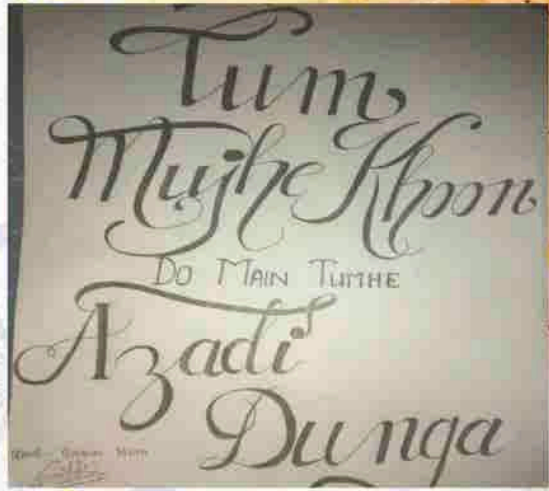 Tum
Mujhe Khoon
DO MAIN TUMHE
Azadi
Dunga